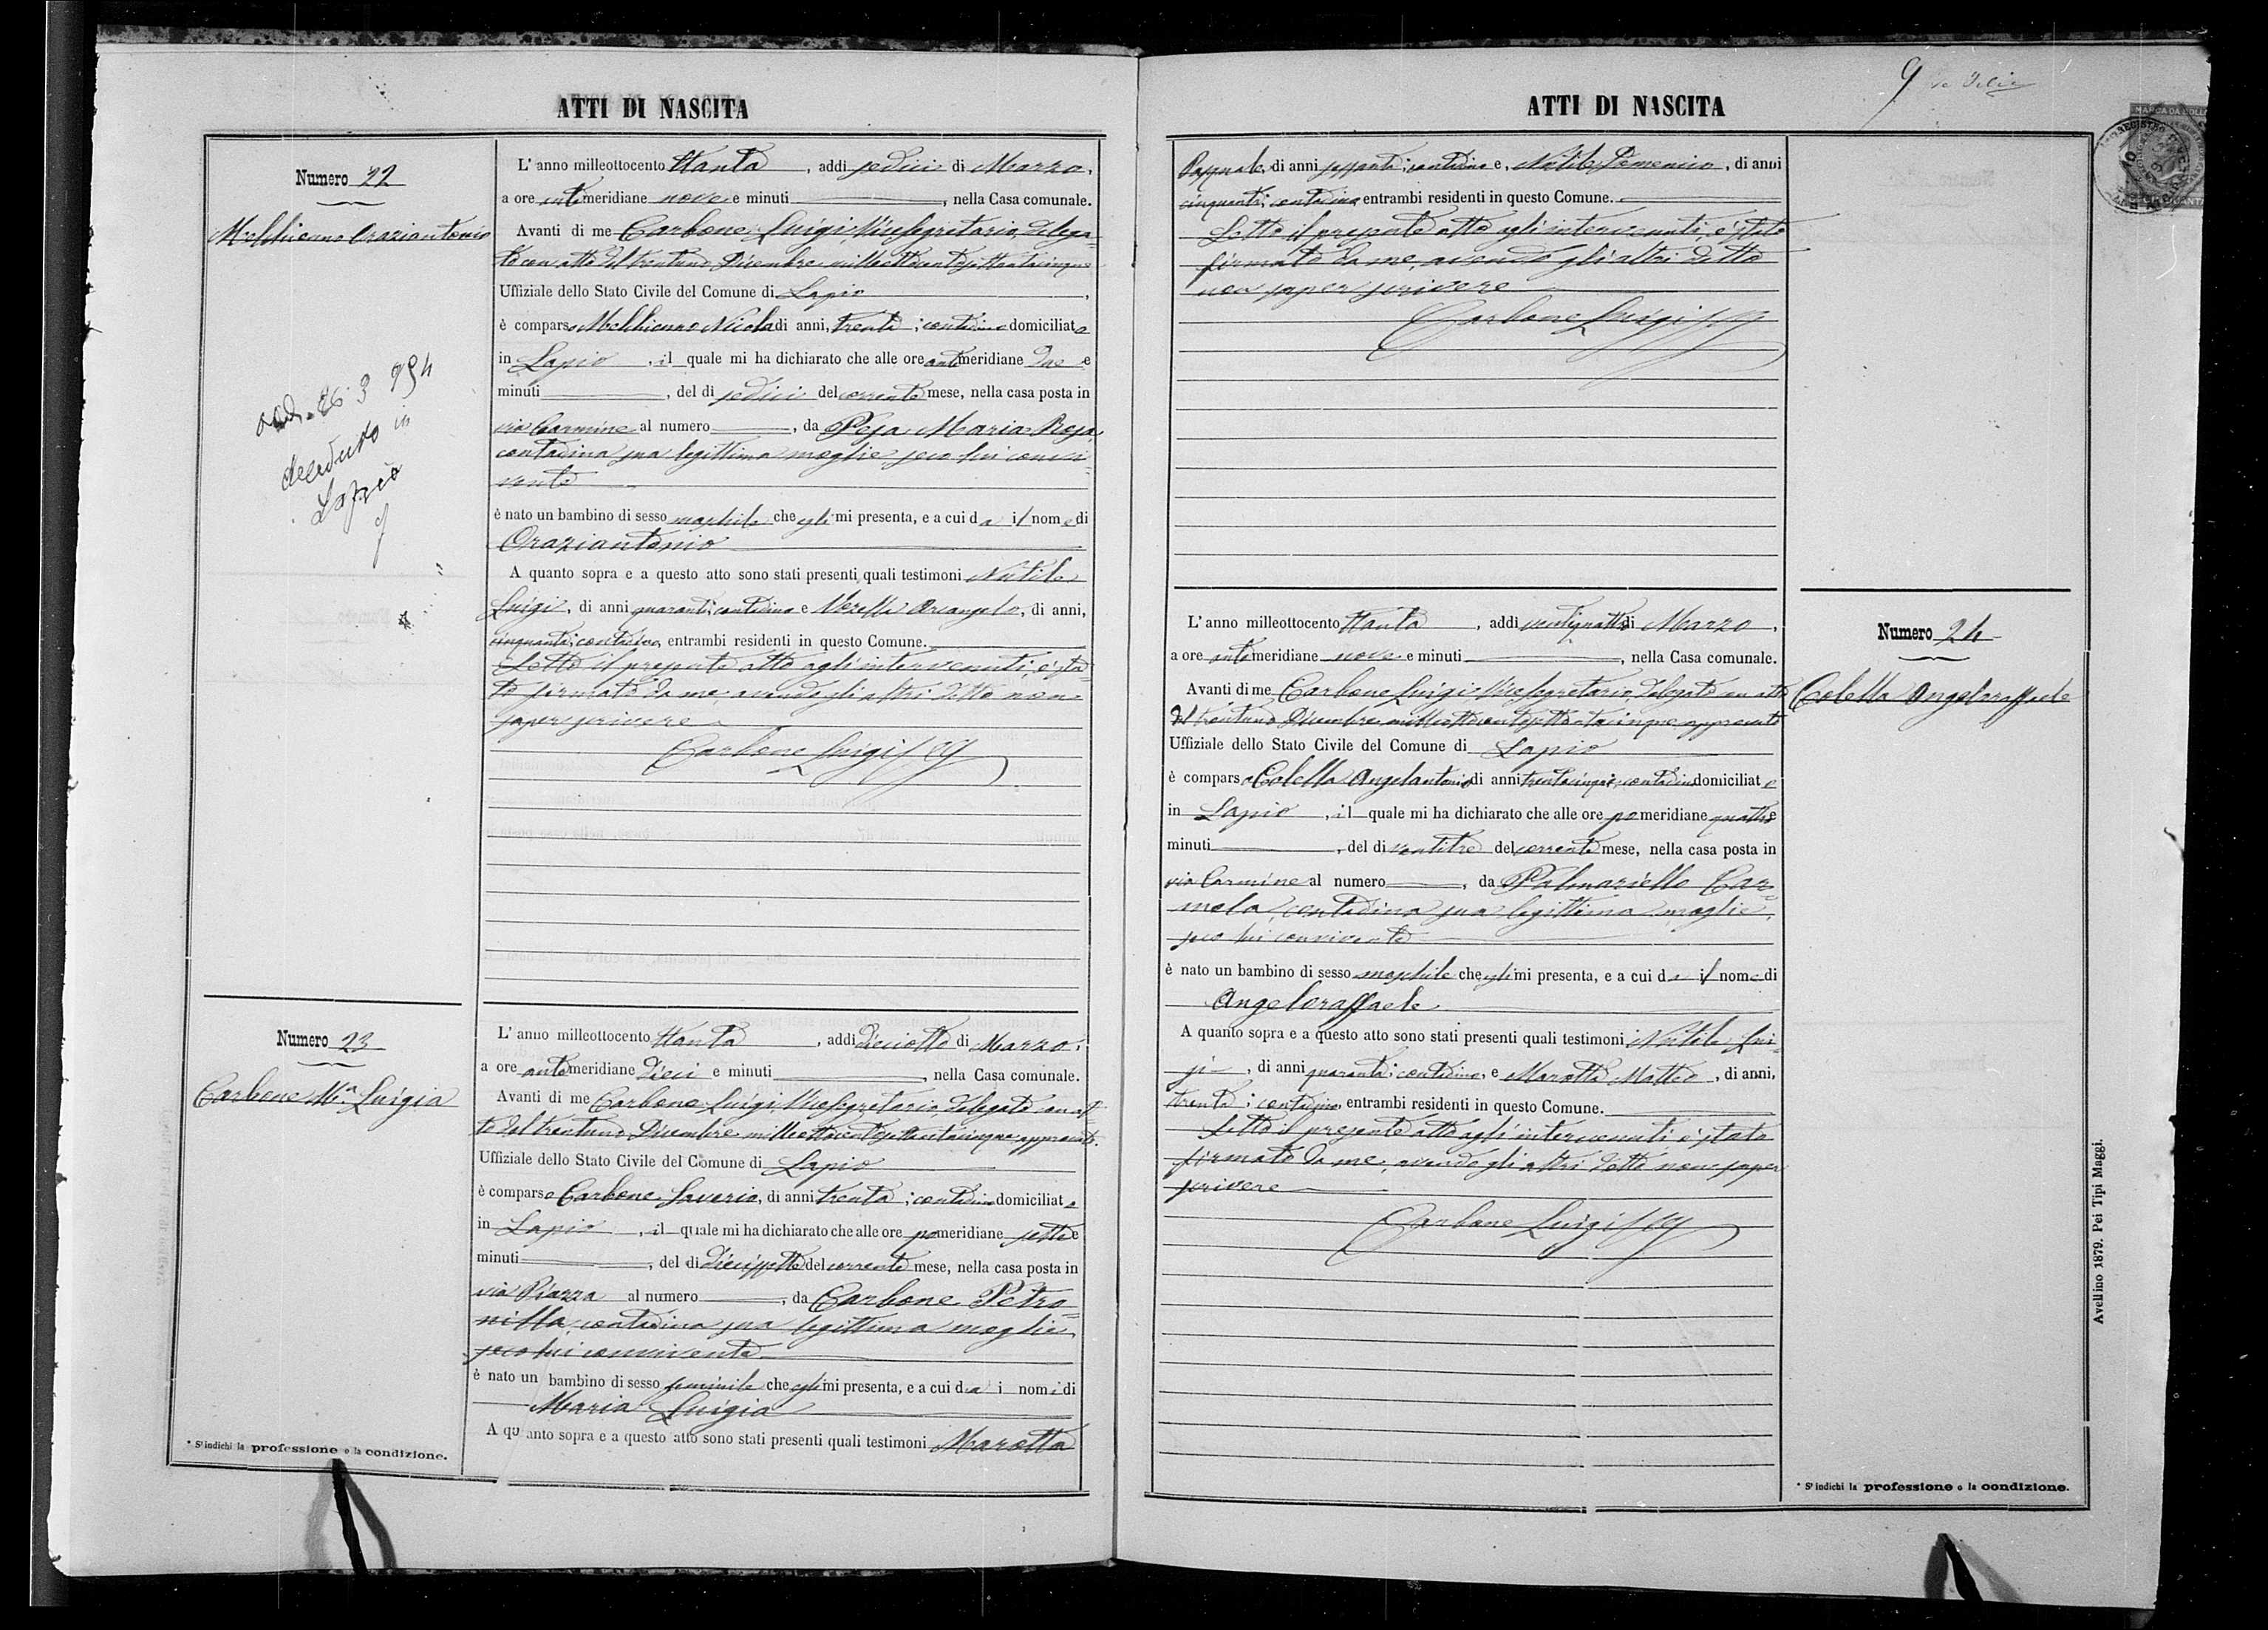 ATTI DI NASCITA
Numero 22
Melchionno Oraziantonio
26 3 954
deceduto in
Lapio
L'anno milleottocento ottanta, addì sedici di Marzo,
a ore antimeridiane nove e minuti, nella Casa comunale.
Avanti di me Carbone Luigi, Vice Segretario, delega=
to con atto del trentuno Dicembre milleottocentosettantacinque
Uffiziale dello Stato Civile del Comune di Lapio,
è comparso Melchionno Nicola di anni, trenta; contadino domiciliato
in Lapio, il quale mi ha dichiarato che alle ore antimeridiane due e
minuti, del dì sedici del corrente mese, nella casa posta in
via Carmine al numero, da Pesa Maria Rosa,
contadina sua legittima moglie seco lui convi=
vente
è nato un bambino di sesso maschile che egli mi presenta, e a cui dà il nome di
Oraziantonio
A quanto sopra e a questo atto sono stati presenti quali testimoni Nutile
Luigi, di anni quaranta; contadino e Verella Arcangelo, di anni,
cinquanta; contadino, entrambi residenti in questo Comune.
Letto il presente atto agli intervenuti, è sta=
to firmato da me, avendo gli altri detto non
saper scrivere
Carbone Luigi
Numero 23
Carbone Mª Luigia
L'anno milleottocento ottanta, addì dieciotto di Marzo,
a ore antimeridiane dieci e minuti, nella Casa comunale.
Avanti di me Carbone Luigi, Vice Segretario, delegato con at=
to del trentuno Dicembre milleottocentosettantacinque approvato.
Uffiziale dello Stato Civile del Comune di Lapio
è comparso Carbone Saverio, di anni trenta; contadino domiciliato
in Lapio, il quale mi ha dichiarato che alle ore pomeridiane sette e
minuti, del dì diecissette del corrente mese, nella casa posta in
via Piazza al numero, da Carbone Petro=
nilla, contadina sua legittima moglie,
seco lui convivente
è nato un bambino di sesso feminile che egli mi presenta, e a cui dà i nomi di
Maria Luigia
A quanto sopra e a questo atto sono stati presenti quali testimoni Marotta
* S'indichi la professione o la condizione.
ATTI DI NASCITA
9
MARCA DA BOLLO
Pasquale, di anni sessanta; contadino e, Nutile Domenico, di anni
cinquanta; contadino, entrambi residenti in questo Comune.
Letto il presente atto agli intervenuti, è stato
firmato da me, avendo gli altri detto
non saper scrivere
Carbone Luigi
Numero 24
Colella Angeloraffaele
L'anno milleottocento ottanta, addì ventiquattro di Marzo,
a ore antimeridiane nove e minuti, nella Casa comunale.
Avanti di me Carbone Luigi, Vice Segretario, delegato con atto
del trentuno Dicembre milleottocentosettantacinque approvato
Uffiziale dello Stato Civile del Comune di Lapio
è comparso Colella Angelantonio di anni trentacinque, contadino domiciliato
in Lapio, il quale mi ha dichiarato che alle ore pomeridiane quattro e
minuti, del dì ventitre del corrente mese, nella casa posta in
via Carmine al numero, da Palmariello Car=
mela, contadina sua legittima moglie,
seco lui convivente
è nato un bambino di sesso maschile che egli mi presenta, e a cui dà il nome di
Angeloraffaele
A quanto sopra e a questo atto sono stati presenti quali testimoni Nutile Lui=
gi, di anni quaranta; contadino, e Marotta Matteo, di anni,
trenta; contadino, entrambi residenti in questo Comune.
Letto il presente atto agli intervenuti è stato
firmato da me, avendo gli altri detto non saper
scrivere
Carbone Luigi
* S'indichi la professione o la condizione.
Avellino 1879. Pei Tipi Maggi.